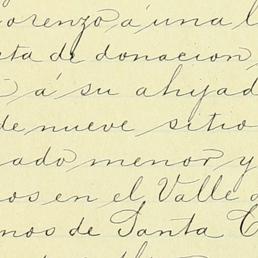 orenzo á una l
ta de donacion,
á su ahijad
de nueve sitio
ado menor y
os en el Valle d
nos de Santa C